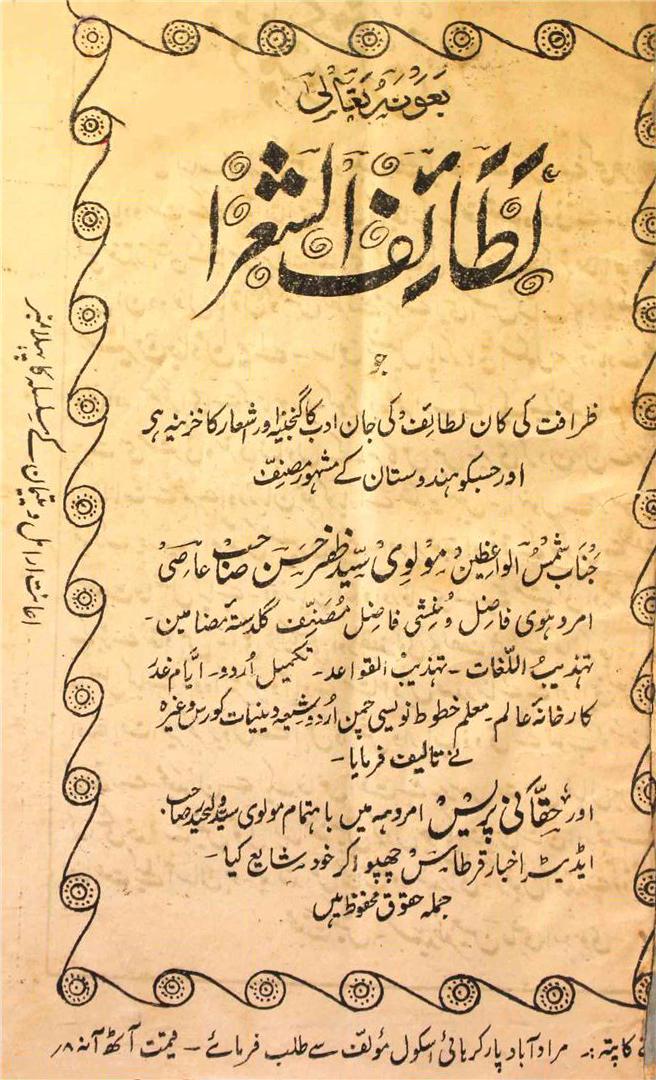 بعونہٖ تعالیٰ
لطائف الشعرا
جو
ظرافت کی کان لطائف کی جان ادب کا گنجینہ اور اشعار کا خزینہ ہی
اور جسکو ہندوستان کے مشہور مصنف
جناب شمس الواعظین مولوی سید ظفر حسن صاحب عاصی
امروہوی فاضل و منشی فاضل مصنف گلدستۂ مضامین -
تہذیب اللغات - تہذیب القواعد - تکمیل اُردو - ایام غدر
کارخانۂ عالم - معلم خطوط نویسی چمن اُردو شیعہ دینیات کورس وغیرہ
نے تالیف فرمایا -
اور حقانی پریس امروہہ میں باہتمام مولوی سید صاحب
ایڈیٹر اخبار قرطاس چھپوا کر خود شایع کیا -
جملہ حقوق محفوظ ہیں
کا پتہ :- مرادآباد پارکر ہائی اسکول مؤلف سے طلب فرمائے - قیمت آٹھ آنہ ۸؍
اعانت ارامل و یتیمان کے سلسلہ کا پہلا نمبر